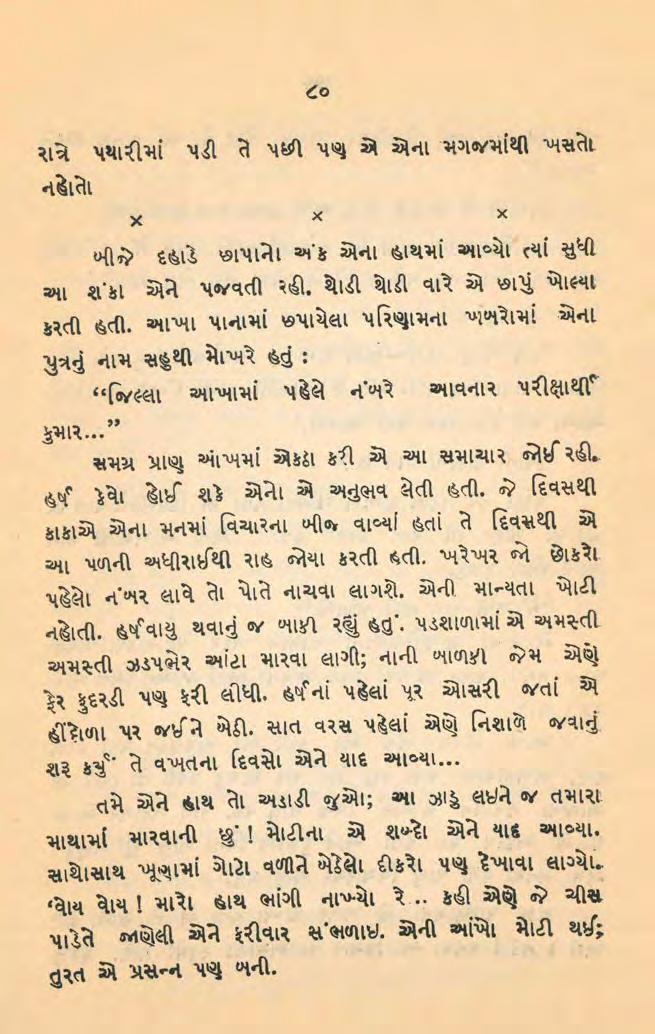 ૮૦
રાત્રે પથારીમાં પડી તે પછી પણ એ એના મગજમાંથી ખસતો
નહોતો
× × ×
બીજે દહાડે છાપાનો અંક એના હાથમાં આવ્યો ત્યાં સુધી
આ શંકા એને પજવતી રહી. થોડી થોડી વારે એ છાપું ખોલ્યા
કરતી હતી. આખા પાનામાં છપાયેલા પરિણામના ખબરોમાં એના
પુત્રનું નામ સહુથી મોખરે હતું :
“જિલ્લા આખામાં પહેલે નંબરે આવનાર પરીક્ષાર્થી
કુમાર...”
સમગ્ર પ્રાણ આંખમાં એકઠા કરી એ આ સમાચાર જોઈ રહી.
હર્ષ કેવો હોઈ શકે એનો એ અનુભવ લેતી હતી. જે દિવસથી
કાકાએ એના મનમાં વિચારના બીજ વાવ્યાં હતાં તે દિવસથી એ
આ પળની અધીરાઈથી રાહ જોયા કરતી હતી. ખરેખર જો છોકરો
પહેલો નંબર લાવે તો પોતે નાચવા લાગશે. એની માન્યતા ખોટી
નહોતી. હર્ષવાયુ થવાનું જ બાકી રહ્યું હતું. પડશાળામાં એ અમસ્તી
અમસ્તી ઝડપભેર આંટા મારવા લાગી; નાની બાળકી જેમ એણે
ફેર કુદરડી પણ ફરી લીધી. હર્ષનાં પહેલાં પૂર ઓસરી જતાં એ
હીંદોળા પર જઈને બેઠી. સાત વરસ પહેલાં એણે નિશાળે જવાનું
શરૂ કર્યું તે વખતના દિવસો એને યાદ આવ્યા...
તમે એને હાથ તો અડાડી જુઓ; આ ઝાડુ લઇને જ તમારા
માથામાં મારવાની છું ! મોટીના એ શબ્દો એને યાદ આવ્યા.
સાથોસાથ ખૂણામાં ગોટો વળીને બેઠેલો દીકરો પણ દેખાવા લાગ્યો.
‘વોય વોય ! મારો હાથ ભાંગી નાખ્યો રે .. કહી એણે જે ચીસ
પાડેતે જાણેલી એને ફરીવાર સંભળાઇ. એની આંખો મોટી થઈ;
તુરત એ પ્રસન્ન પણ બની.